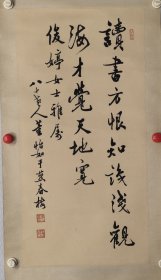 讀書方恨知識淺觀
海才覺天地寬
俊婷女士雅屬
八十七老人董怡如于燕春樓